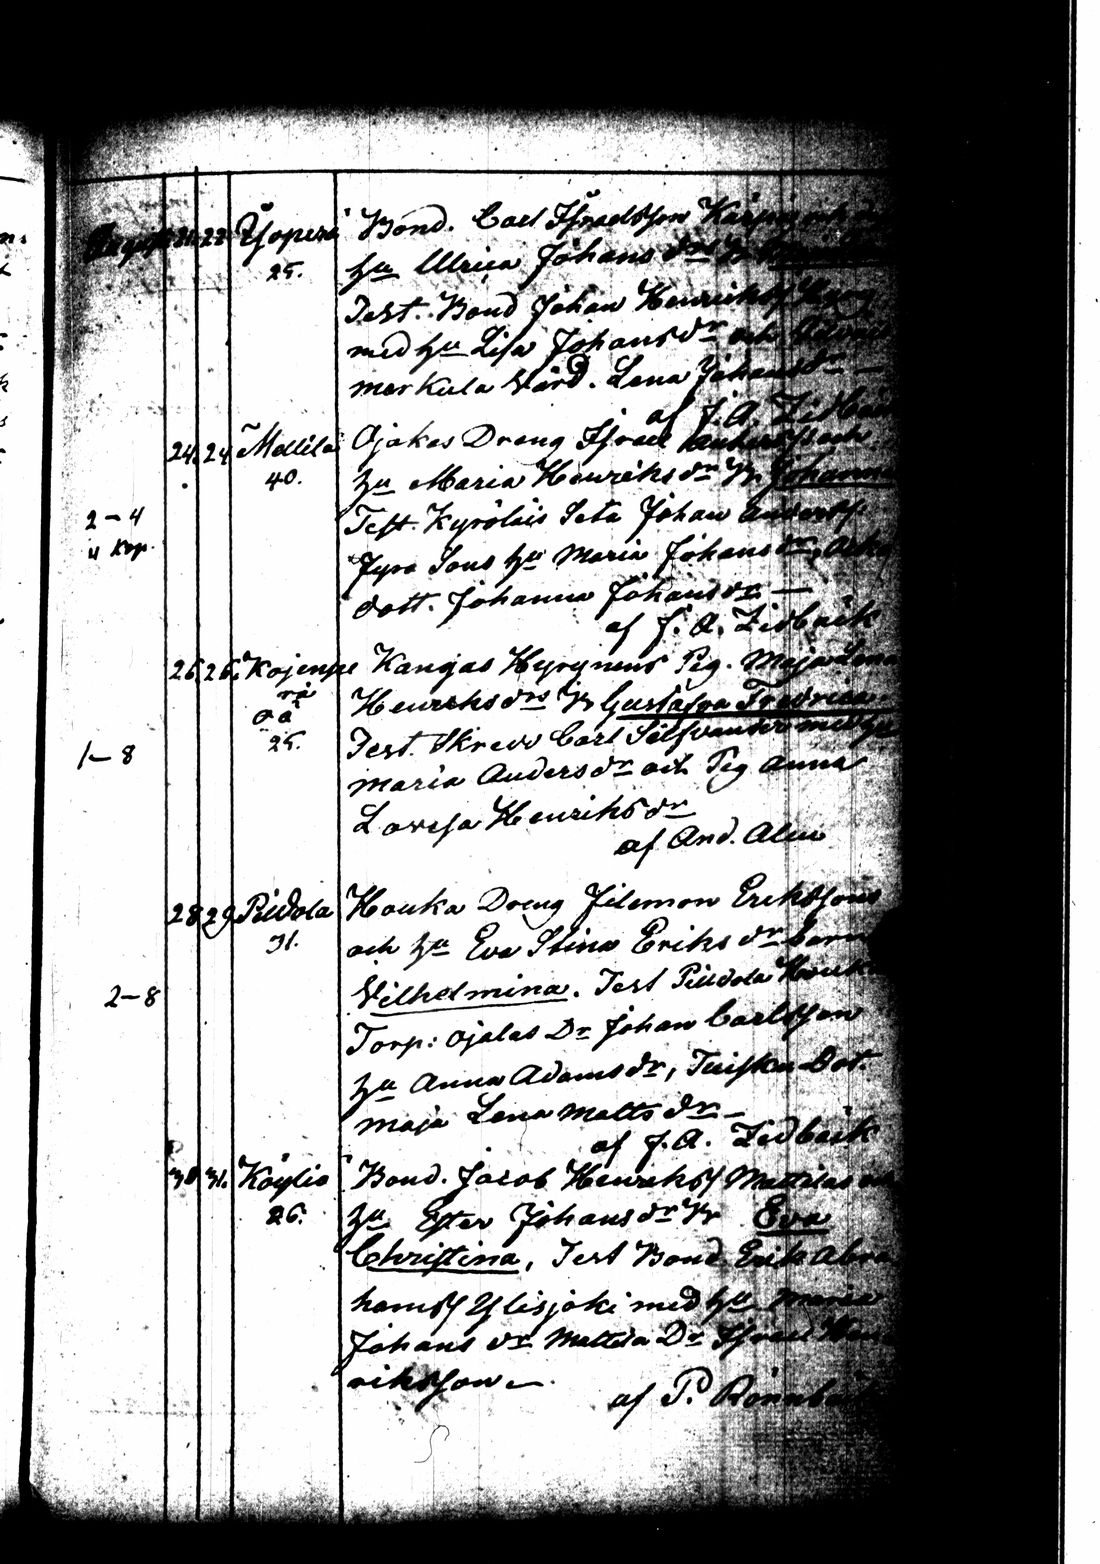 August 21. 22 Ylioperä Bond. Carl Isradsson
25. hu Ulrica Johans dr
Test. Bond Johan Henrikss
med hu Lisa Johans dr och
merkula Värd. Lena Johans dr —
af J. A. Zidbäck
24. 24 Mellilä Ojakas Dreng Israel Anderss och
40. hu Maria Henriks dr Br Johanna
2-4 Test. Kyrölais Seta Johan Anderss.
4 Kop. Fyra Sons hu Maria Johans dr,
dott. Johanna Johans dr —
af J. A. Zidbäck
26. 26. Kojenpe Kangas Hyrynens Pig. Maja Lena
rä Henriks drs Br Gustafva Fredrica
oä
25. Test. Skredd Carl Silfvander med hu
1-8 Maria Anders dr och Pig Anna
Lovisa Henriks dr
af And. Alin
28 29 Pildola Houka Dreng Filemon Erikssons
31. och hu Eva Stina Eriks dr barn
2-8 Vilhelmina. Test Pildola Houka
Torp: Ojalas Dr Johan Carlsson
hu Anna Adams dr, Tuisku Dot.
Maja Lena Matts dr —
af J. A. Zidbäck
30 31. Köyliö Bond. Jacob Henrikss Mattilas och
26. hu Ester Johans dr Br Eva
Christina, Test Bond Erik Abra
hamss Ylisjoki med hu Maria
Johans dr Mattila Dr Israel Hen
riksson —
af P. Rönnbäck